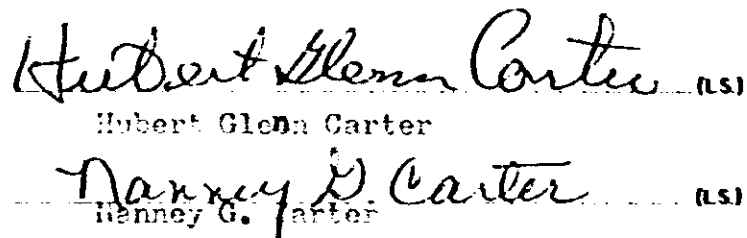 Hubert Glenn Carter (L.S.)
Hubert Glenn Carter
Nanney G. Carter (L.S.)
Nanney G. Carter